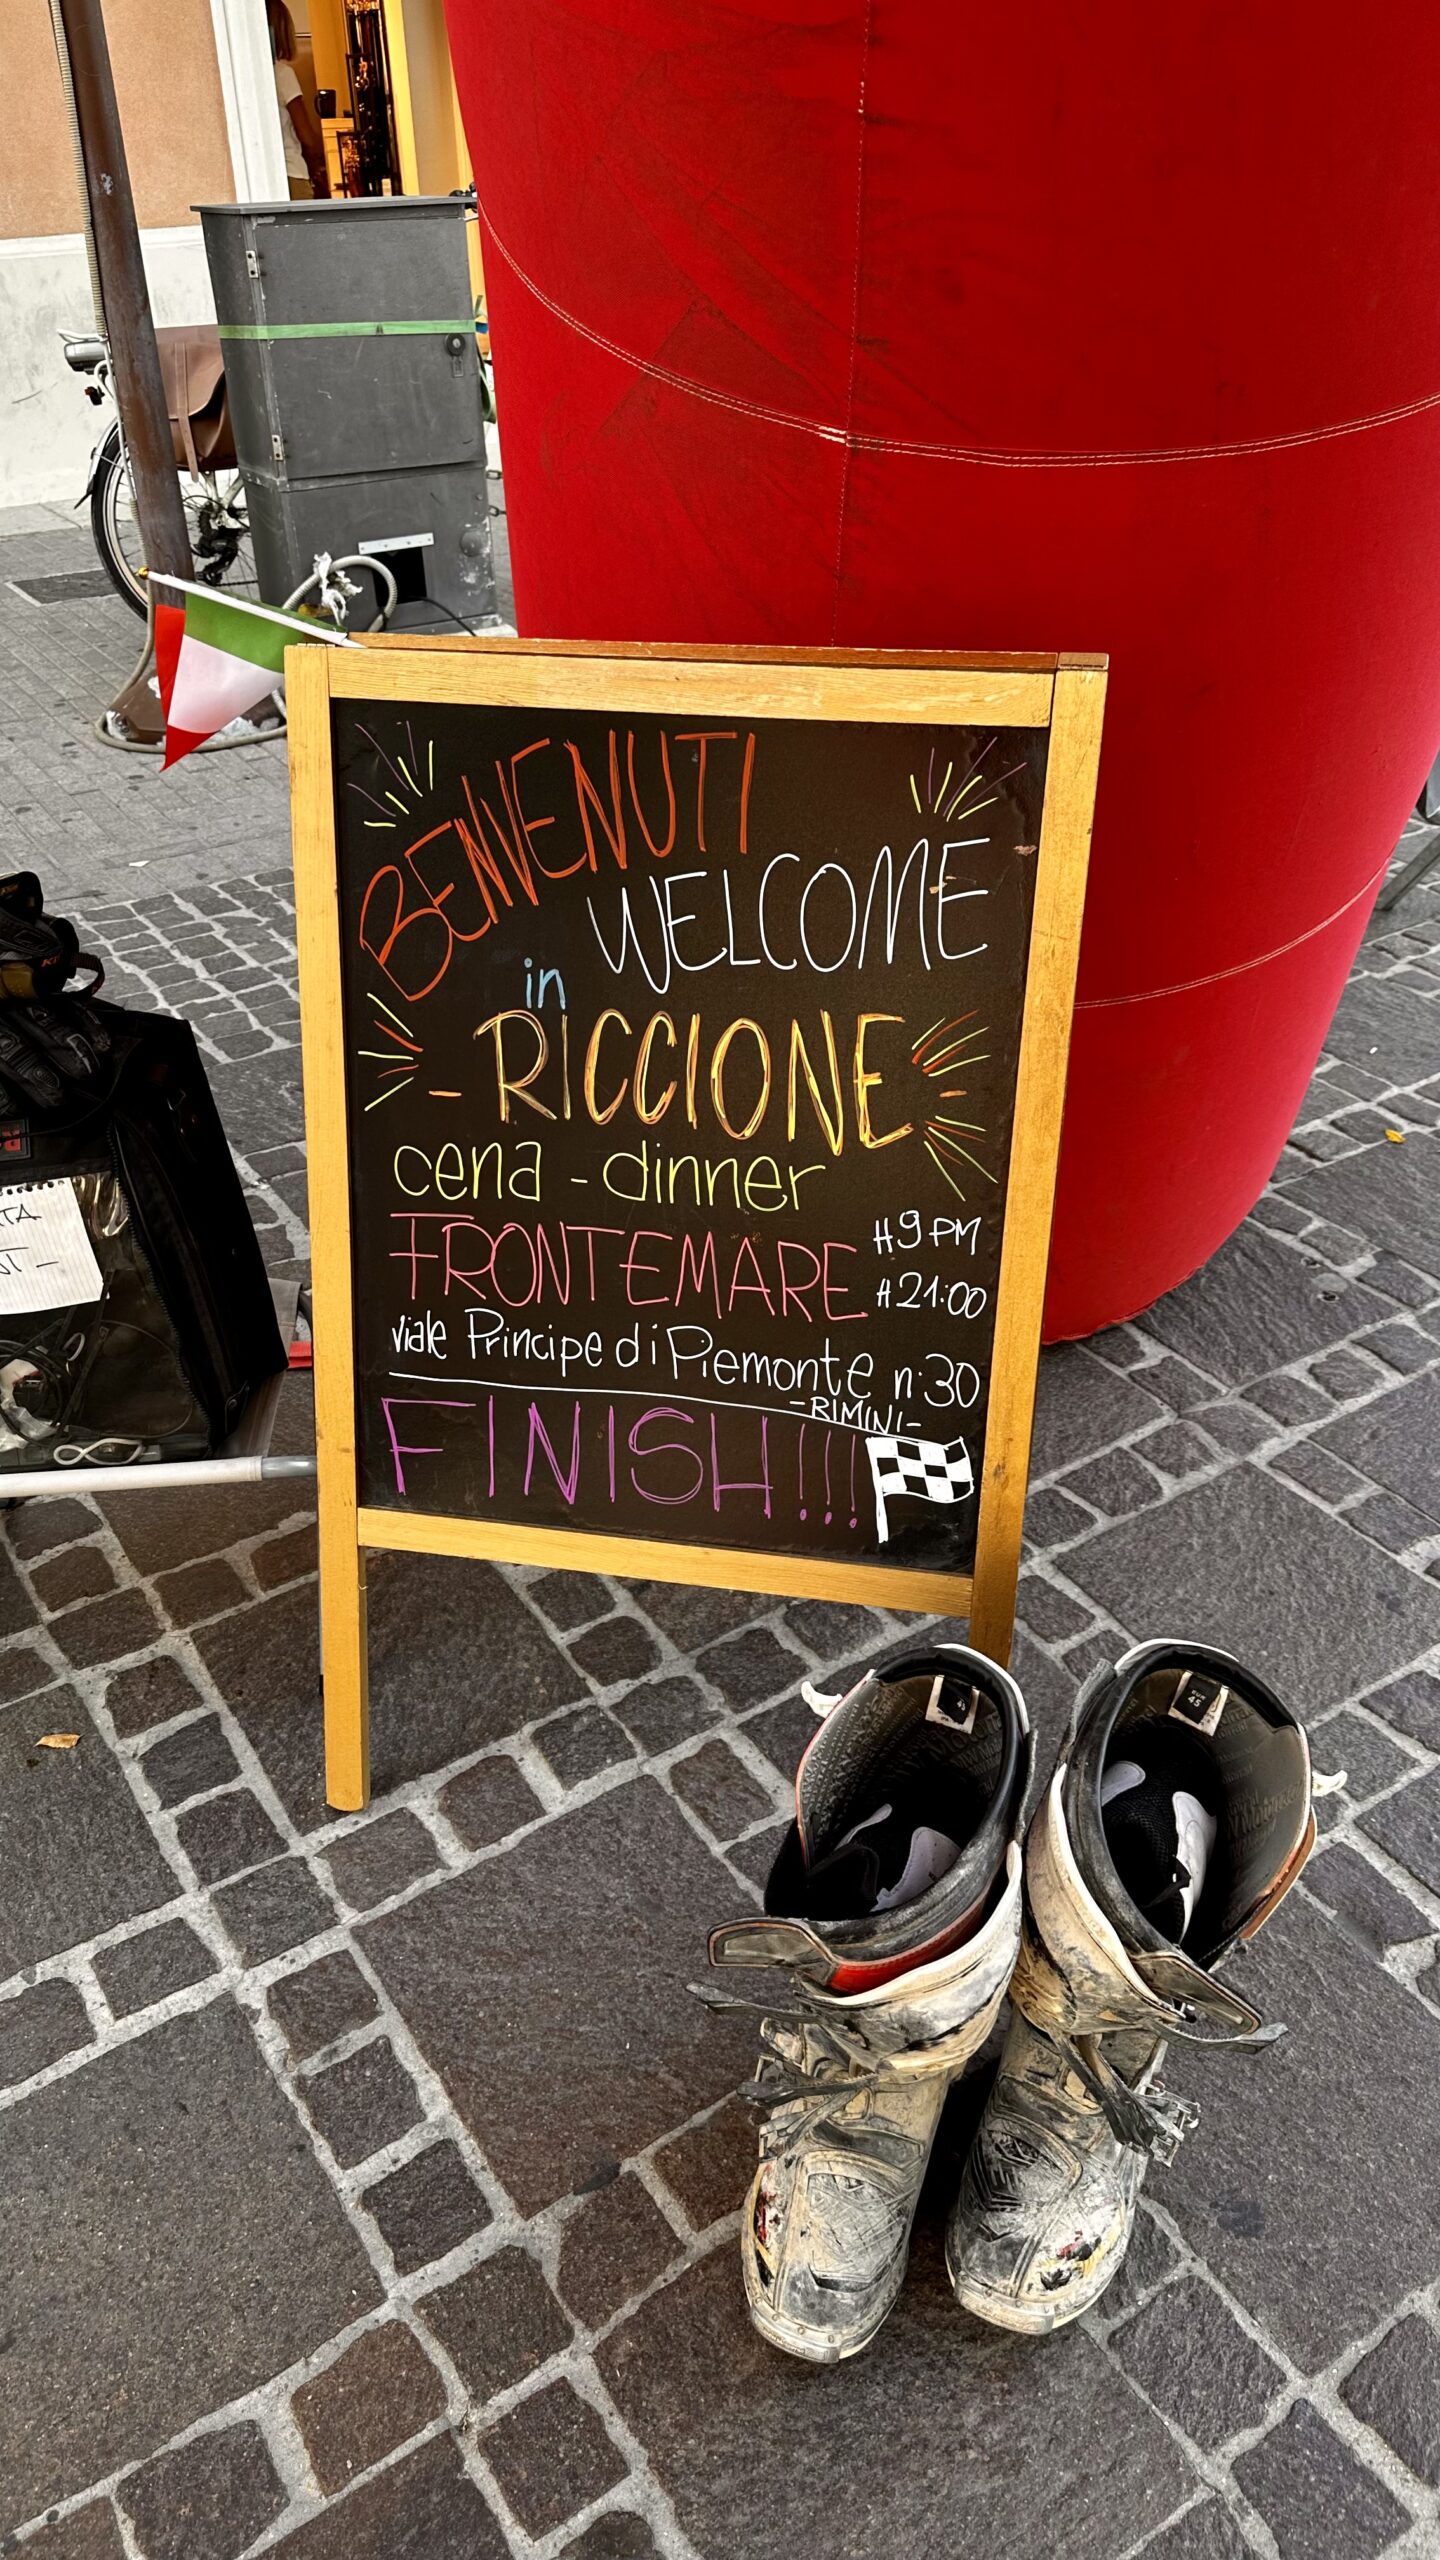 BENVENUTI
WELCOME
in
- RICCIONE -
cena - dinner
FRONTEMARE
H9PM
H21:00
viale Principe di Piemonte n.30
-RIMINI-
FINISH!!!
TA
NT -
45
45